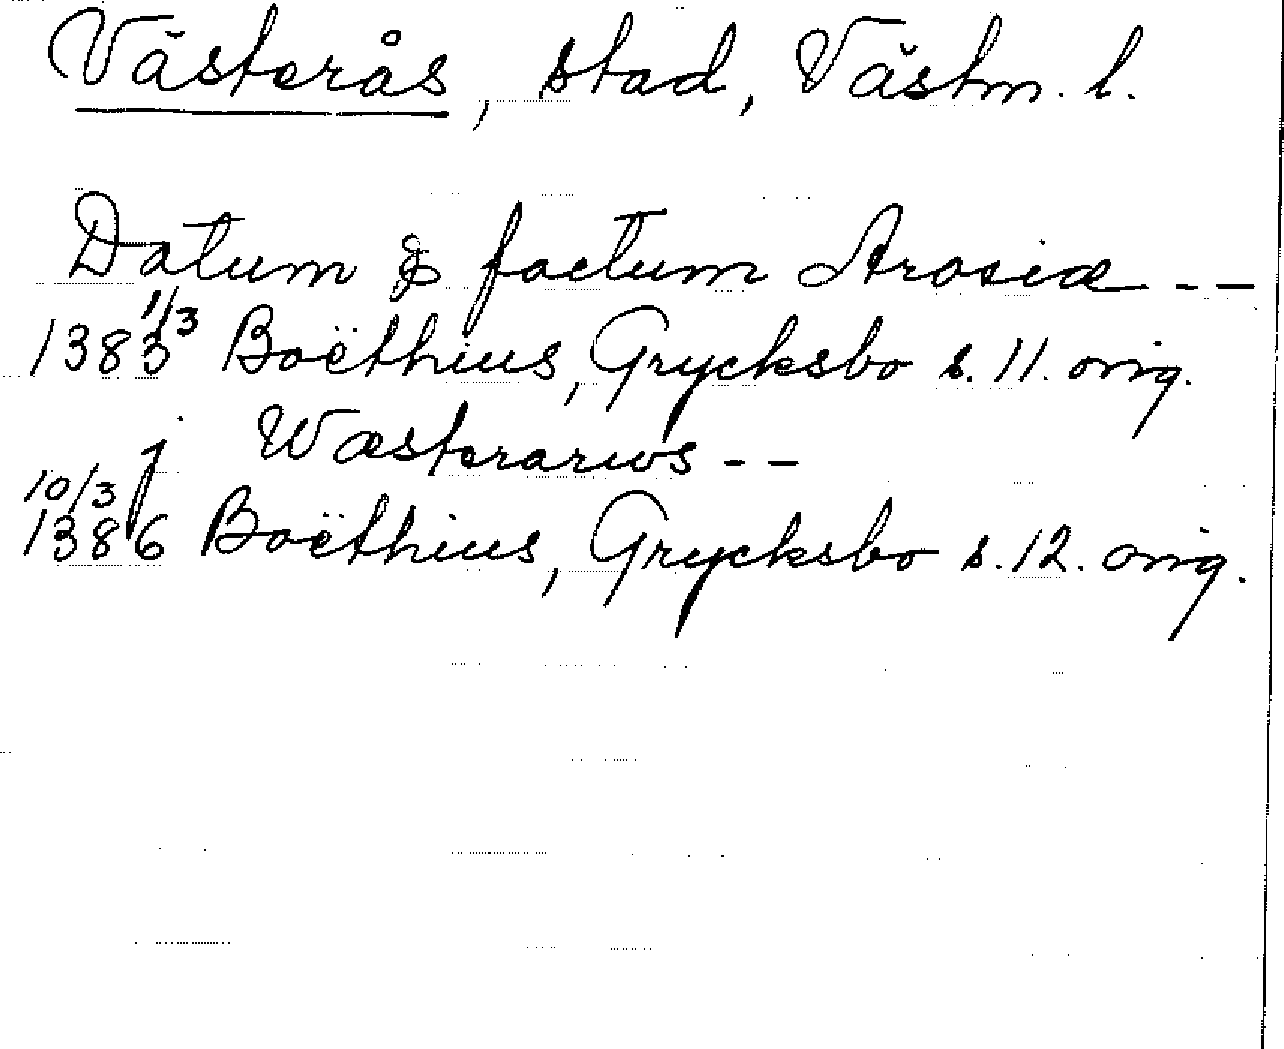 Västerås, stad, Västm. l.
Datum & factum Arosiæ - -
1383 1/3 Boëthius, Grycksbo s. 11. orig.
j Wæsterarws - -
10/3
1386 Boëthius, Grycksbo s. 12. orig.